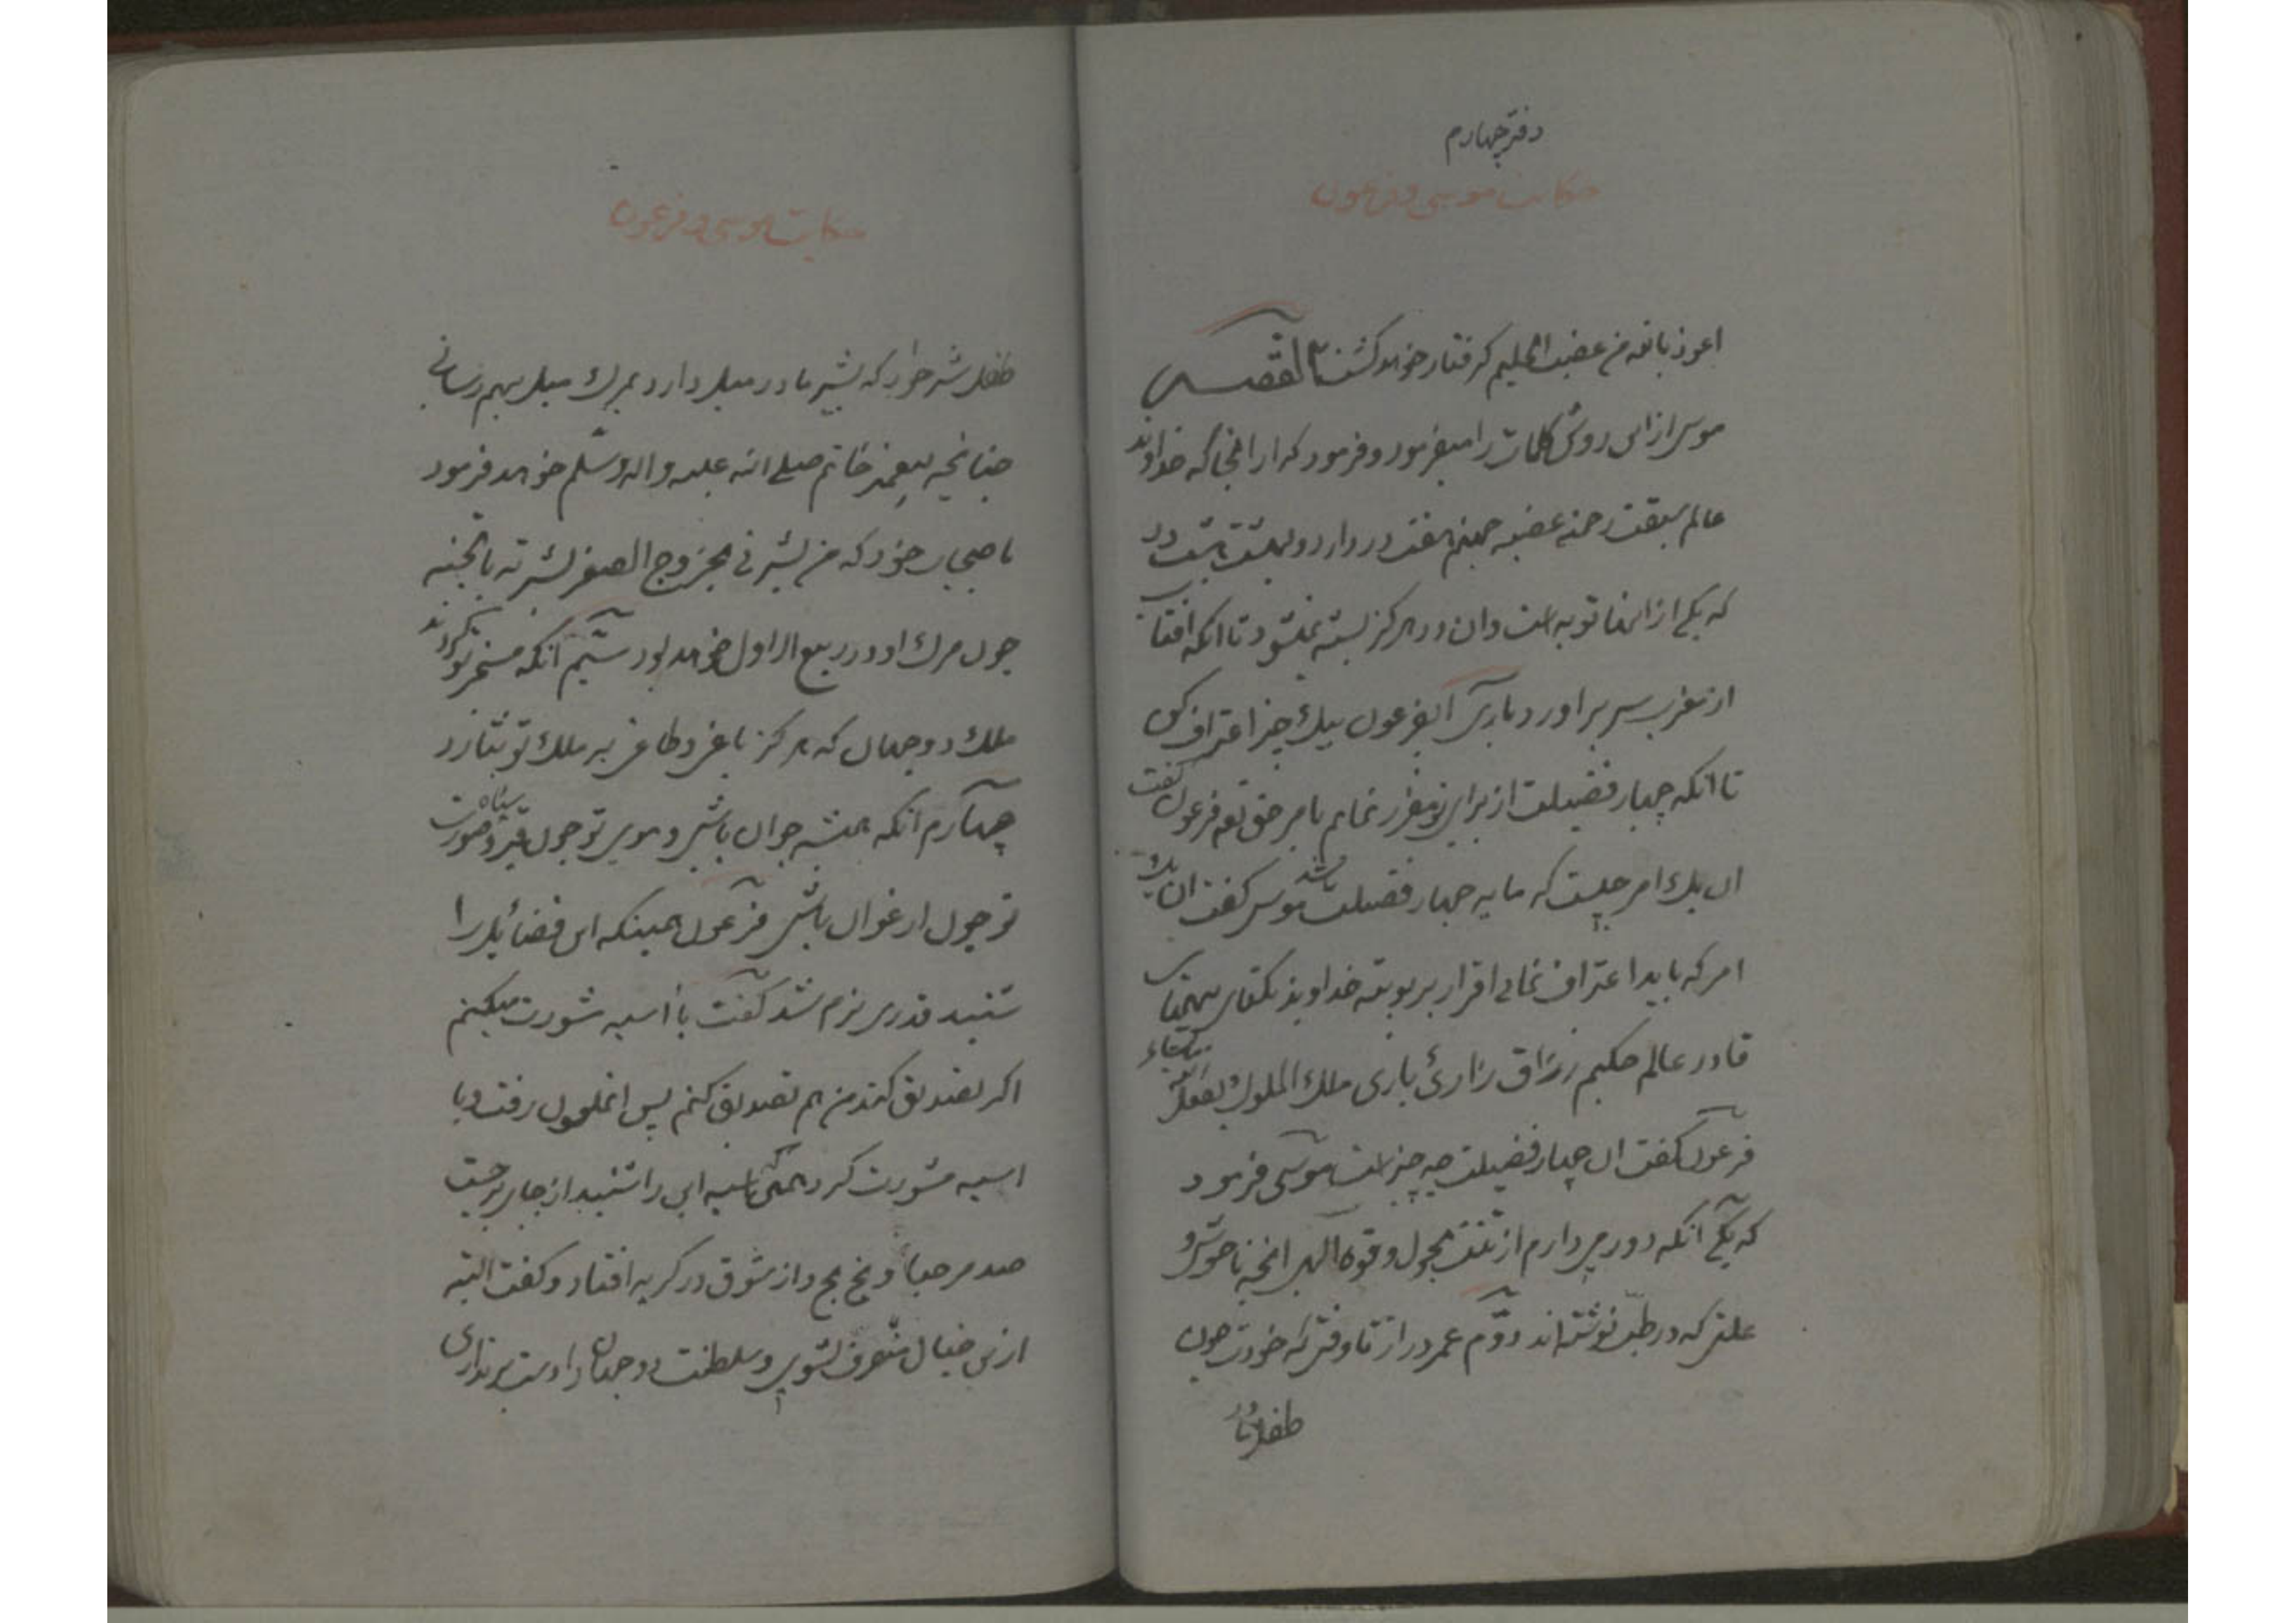 دفتر چهارم
حکایت موسی و فرعون
اعوذ بالله من غضب الحلیم کرفتار خواهد کشت القصه
موسی از این روش کلمات را میفرمود و فرمود که از انجا که خداوند
عالم سبقت رحمته غضبه جهنم هفت در دارد و بهشت هشت در
که یکی از انها توبه است و ان در هرکز بسته نمیشود تا انکه افتاب
از مغرب سر بر اورد باری ایفرعون بیک چیز اعتراف کن
تا انکه چهار فضیلت از برای تو مقرر نمایم بامر حق تعه فرعون کفت
ان یک امر چیست که مایه چهار فضیلت باشد موسی کفت ان یک
امر که باید اعتراف نمائی اقرار بربوبیة خداوند یکتای بیهمتای
قادر عالم حکیم رزاق باری ملک الملوک
فرعون کفت ان چهار فضیلت چه چیز است موسی فرمود
که یکی انکه دور میدارم از تنت بحول و قوه الهی انچه ناخوشی و
علتی که در طب نوشته اند دوم عمر دراز تا وقتی که خودت چون
طفل
حکایت موسی و فرعون
طفل شیر خوار که بشیر مادر میل دارد بمرک میل بهم رسانی
چنانچه پیغمبر خاتم صلی الله علیه و اله و سلم خواهد فرمود
باصحاب خود که من بشرنی بخروج الصفر بشرته بالجنه
چون مرک او در ربیع الاول خواهد بود سیم انکه مسخر تو کرداند
ملک دو جهان که هرکز باغی و طاغی بر ملک تو نتازد
چهارم انکه همیشه جوان باشی و موی تو چون قیر سیاه و صورت
تو چون ارغوان باشی فرعون همینکه این فضایل را
شنید قدری نرم شد کفت با اسیه مشورت میکنم
اکر تصدیق کند من هم تصدیق کنم پس انملعون رفت و با
اسیه مشورت کرد همینکه اسیه این را شنید از جای برجست
صد مرحبا و بخ بخ و از شوق در کریه افتاد و کفت البته
از این خیال منحرف نشوی و سلطنت دو جهان را دست برنداری